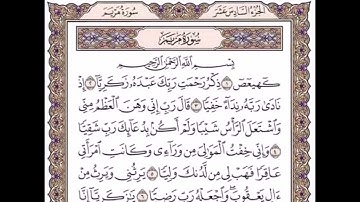 سُورَةُ مَرْيَمَ الجُزْءُ السَّادِسَ عَشَرَ
سُورَةُ مَرْيَمَ
بِسْمِ اللَّهِ الرَّحْمَٰنِ الرَّحِيمِ
كٓهيعٓصٓ ١ ذِكْرُ رَحْمَتِ رَبِّكَ عَبْدَهُۥ زَكَرِيَّآ ٢ إِذْ
نَادَىٰ رَبَّهُۥ نِدَآءً خَفِيًّا ٣ قَالَ رَبِّ إِنِّي وَهَنَ ٱلْعَظْمُ مِنِّي
وَٱشْتَعَلَ ٱلرَّأْسُ شَيْبًا وَلَمْ أَكُنۢ بِدُعَآئِكَ رَبِّ شَقِيًّا
٤ وَإِنِّي خِفْتُ ٱلْمَوَٰلِيَ مِن وَرَآءِي وَكَانَتِ ٱمْرَأَتِي
عَاقِرًا فَهَبْ لِي مِن لَّدُنكَ وَلِيًّا ٥ يَرِثُنِي وَيَرِثُ مِنْ
ءَالِ يَعْقُوبَ وَٱجْعَلْهُ رَبِّ رَضِيًّا ٦ يَٰزَكَرِيَّآ إِنَّا